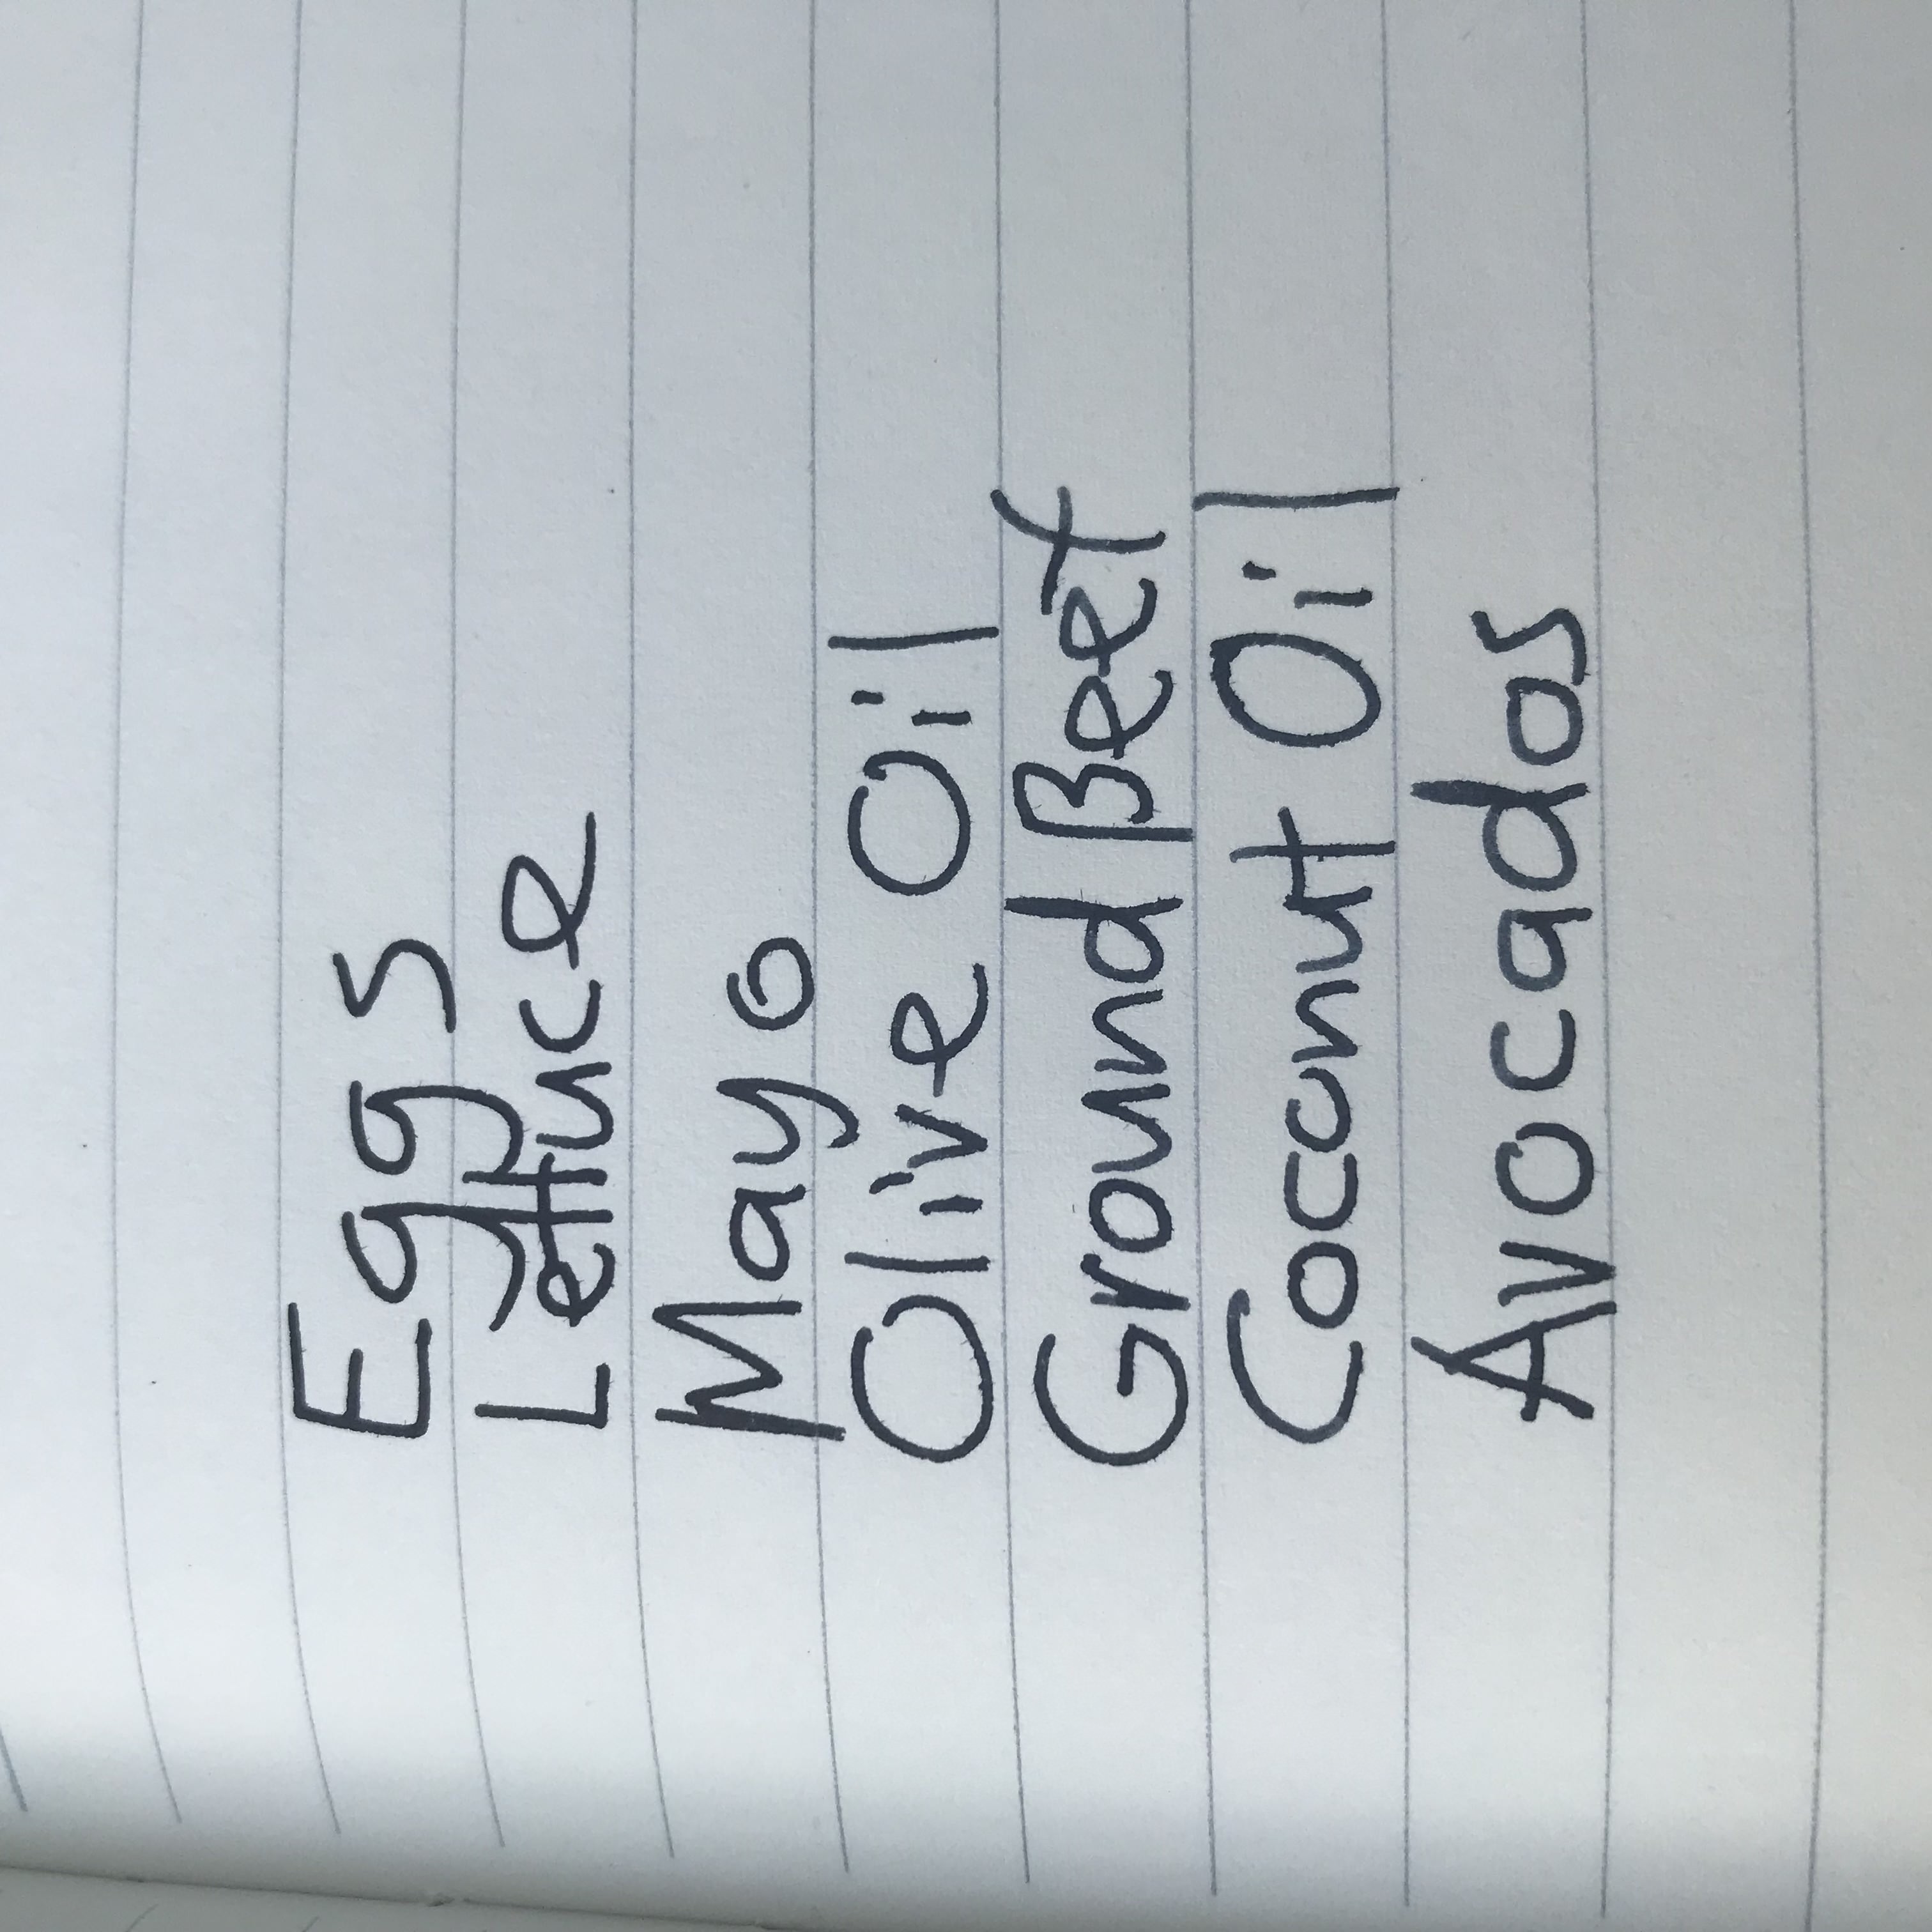 Eggs
Lettuce
Mayo
Olive Oil
Ground Beef
Coconut Oil
Avocados